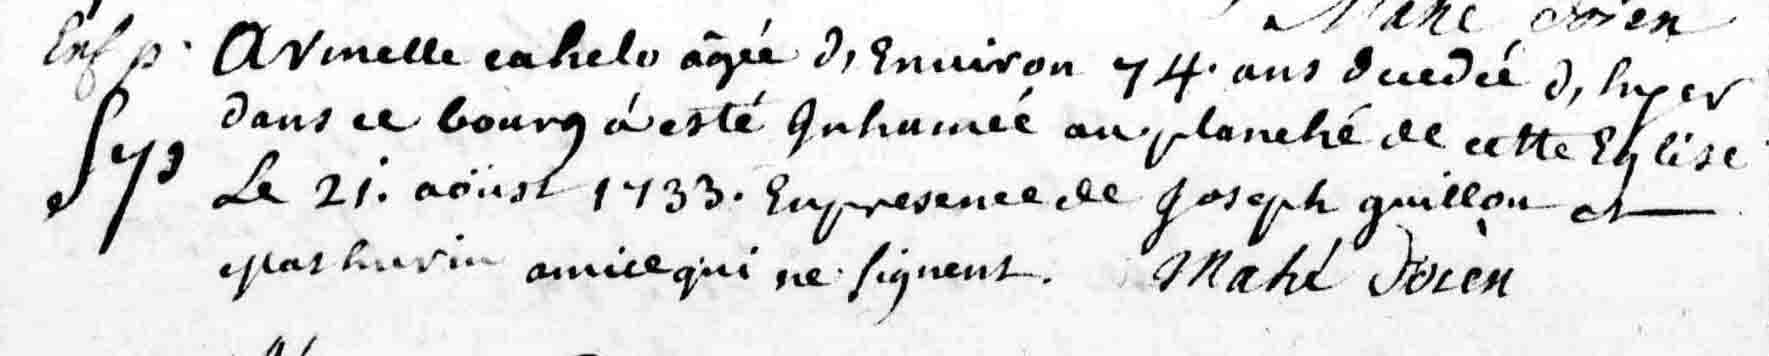 Mahé Doien
Enf p. Armelle cahelo âgée d, Environ 74. ans decedeé d, hyer
dans ce bourg á esté Inhumeé au planché de cette Eglise
Le 21. aöust 1733. En presence de Joseph guillon et
Mathurin amice qui ne signent. Mahé Doien